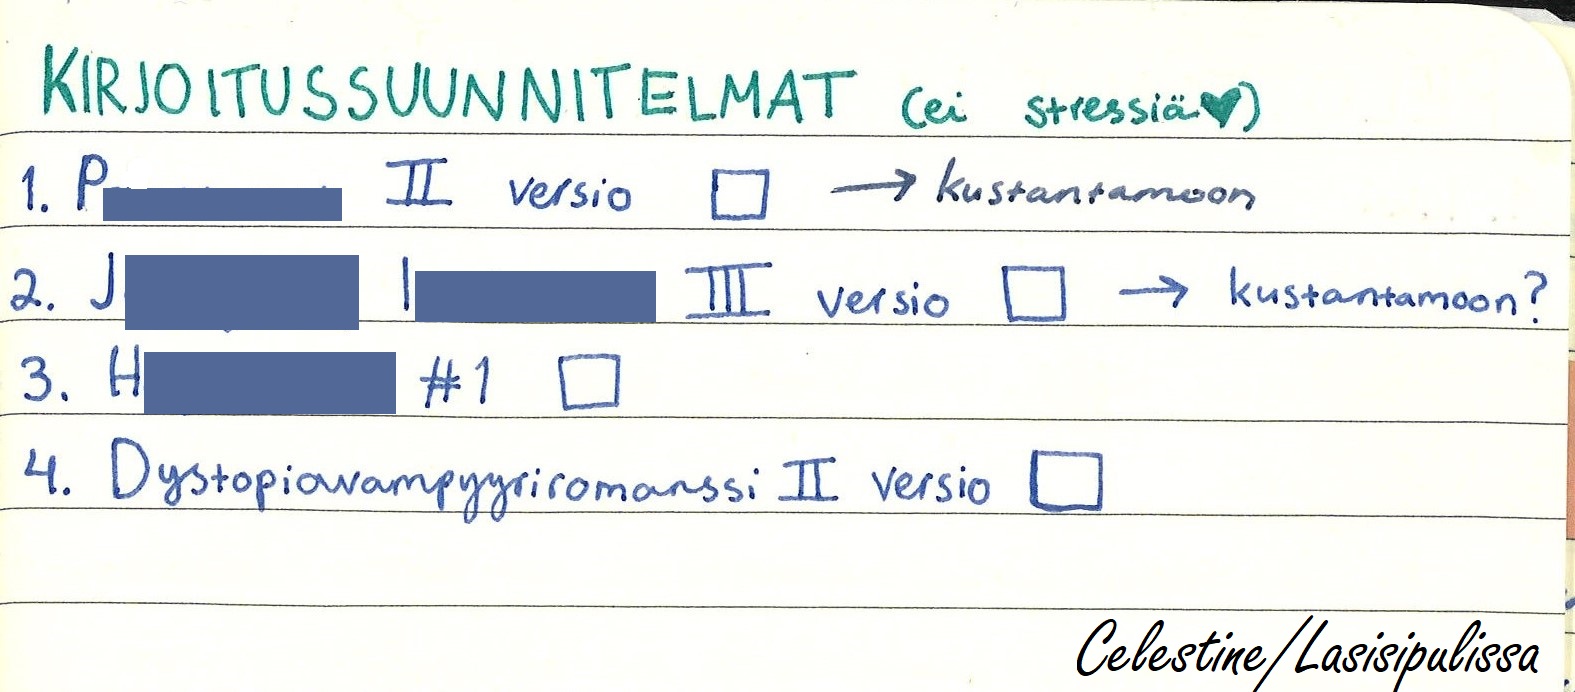 KIRJOITUSSUUNNITELMAT (ei stressiä♥)
1. P II versio → kustantamoon
2. J I III versio → kustantamoon?
3. H #1
4. Dystopiavampyyriromanssi II versio
Celestine/Lasisipulissa